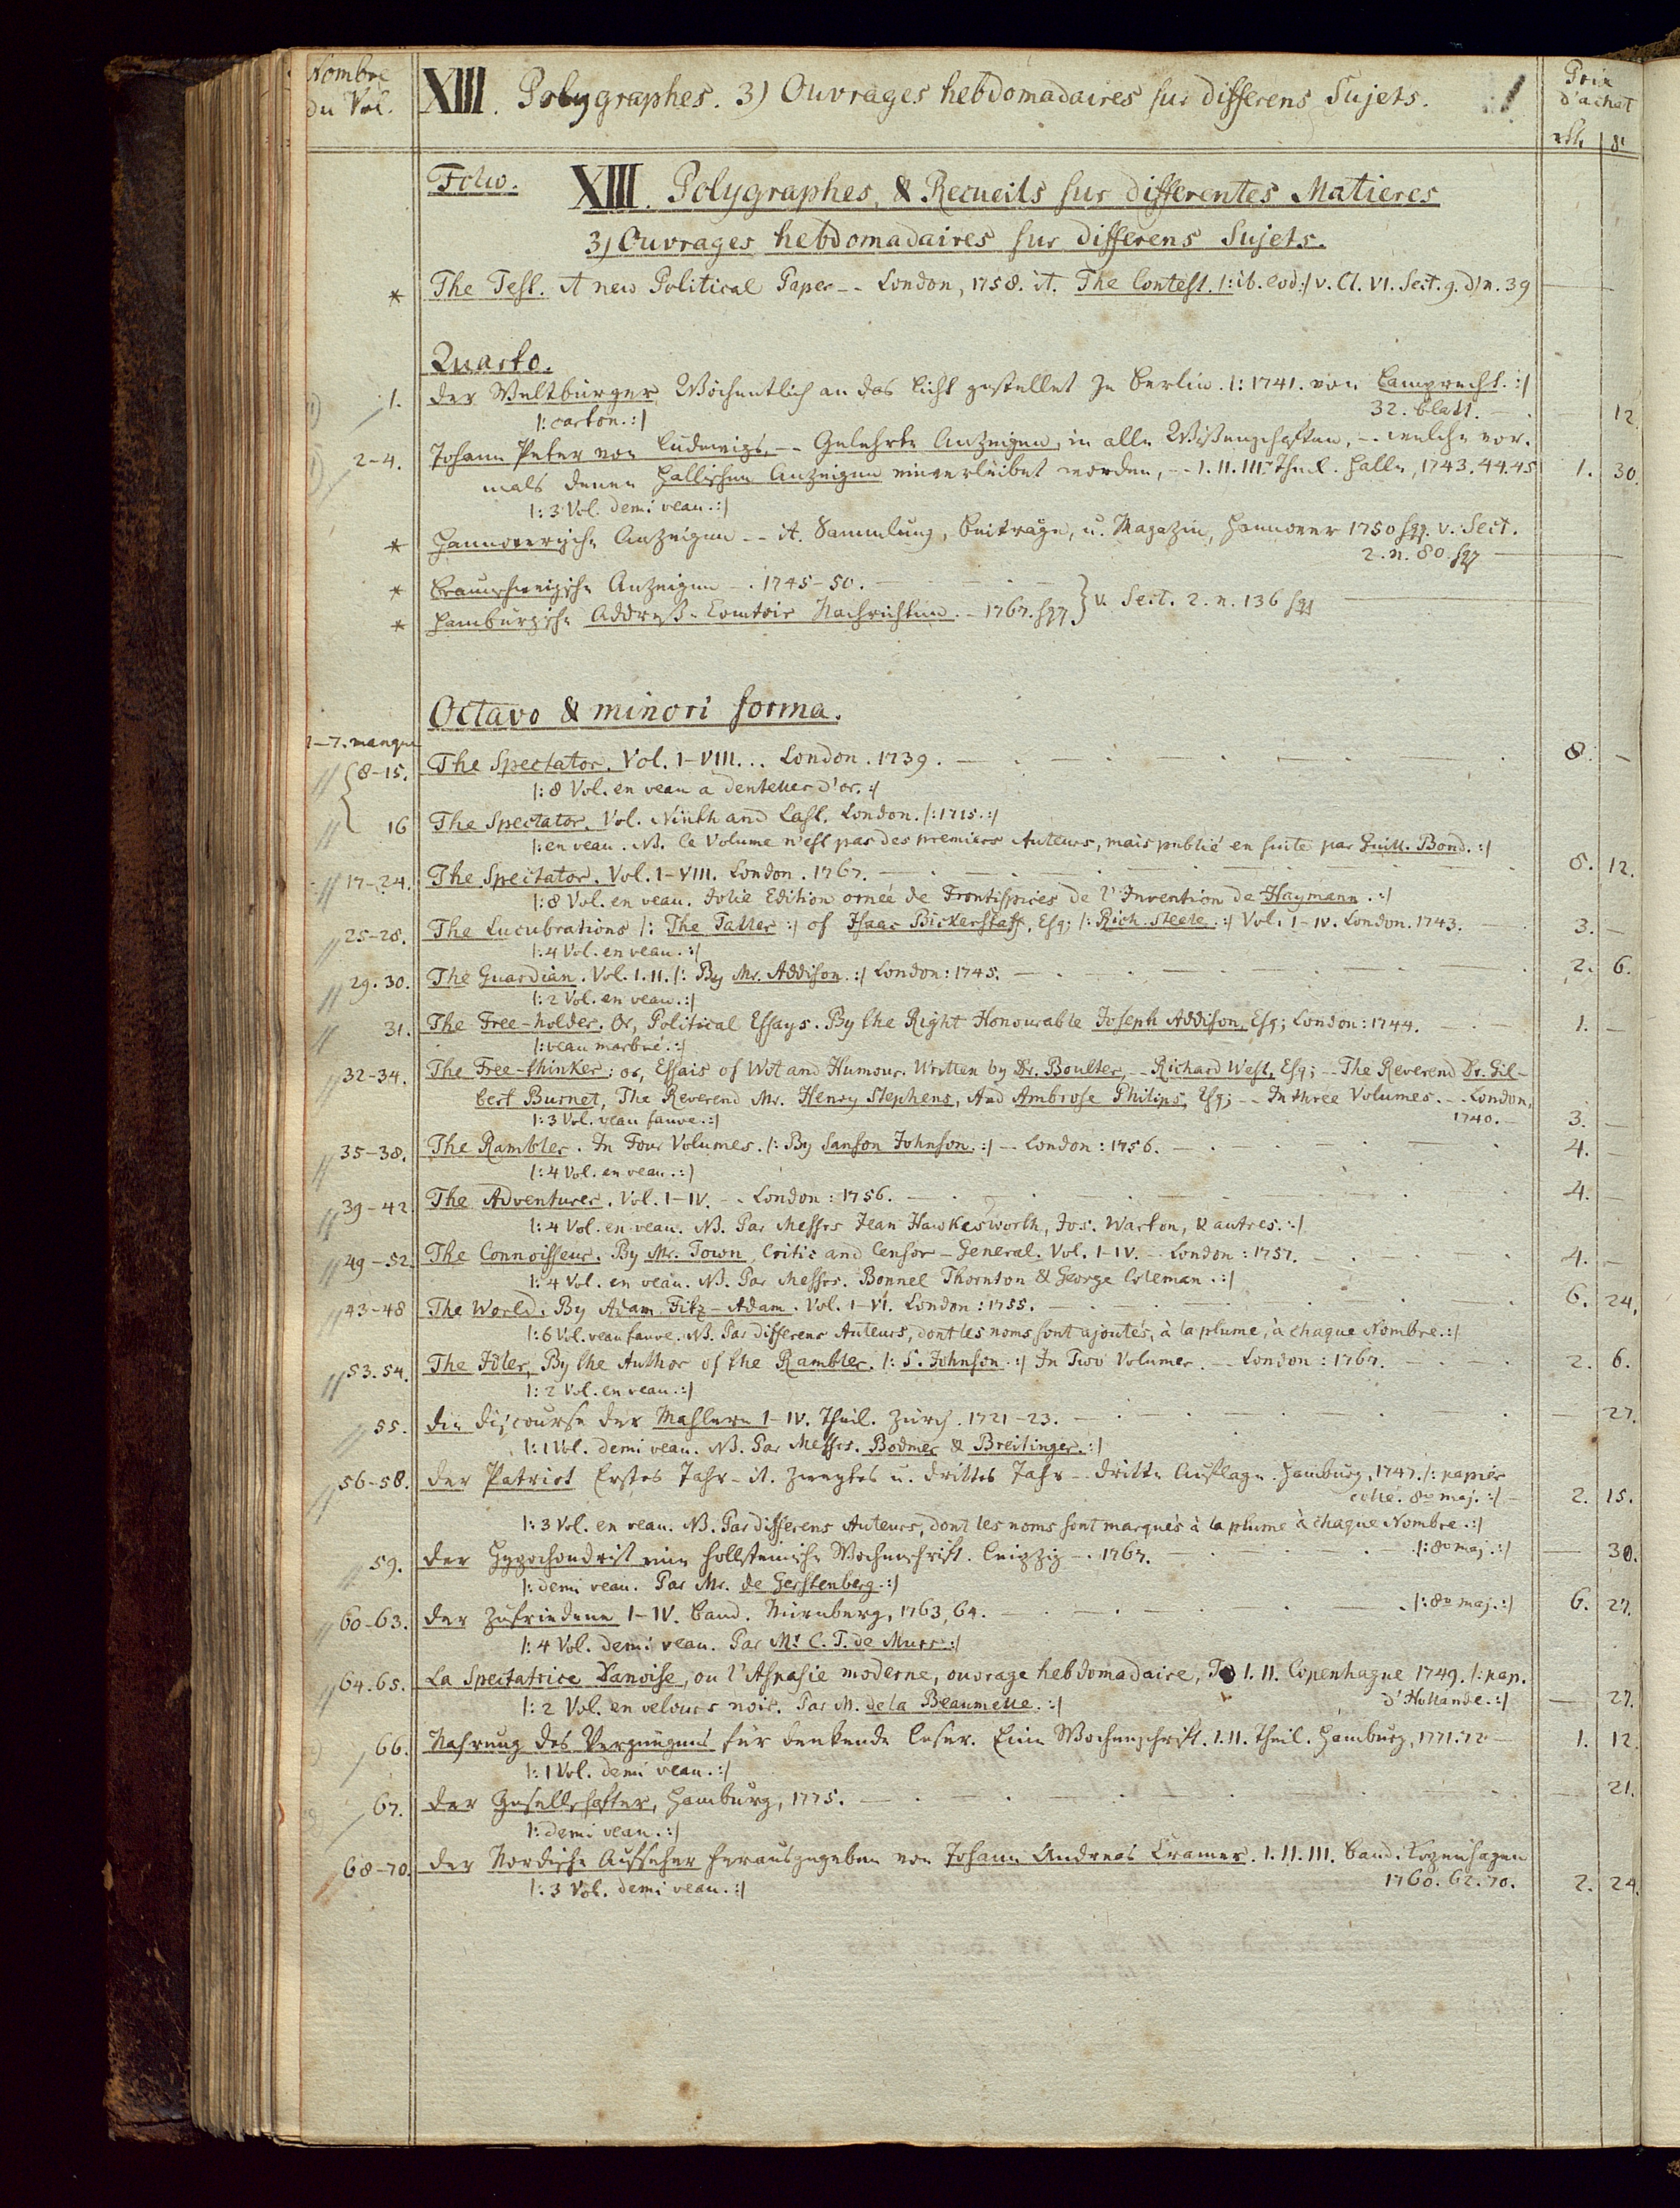 Nombre du Vol.
XIII. Polygraphes. 3) Ouvrages hebdomadaires sur differens Sujets.
Prix d'achat
Folio. XIII. Polygraphes, & Recueils sur differentes Matieres
3) Ouvrages hebdomadaires sur differens Sujets.
* The Test. A new Political Paper -- London, 1758. it. The Contest. /: ib. eod :/ v. Cl. VI. Sect. 9. d) n. 39
Quarto.
1. Der Weltbürger Wöchentlich an das Licht gestellet zu Berlin. /: 1741. von Lamprecht. :/
32. Blatt. — 12
/: carton. :/
2-4. Johann Peter von Ludewigs, -- Gelehrte Anzeigen, in alle Wißenschaften, -- welche vor-
mals denen Hallischen Anzeigen einverleibet worden, -- I. II. III. Theil. Halle, 1743. 44. 45 1. 30.
/: 3 Vol. demi veau. :/
* Hannoverische Anzeigen -- it. Sammlung, Beiträge, u. Magazin, Hannover 1750 sqq. v. Sect.
2. n. 80. sqq
* Braunschweigische Anzeigen -. 1745-50.
* Hamburgische Addreß-Comtoir Nachrichten. - 1767. sqq } v. Sect. 2. n. 136 sqq
Octavo & minori forma.
1-7. manque
8-15. The Spectator. Vol. I-VIII... London. 1739. 8. —
/: 8 Vol. en veau a dentelles d'or. :/
16 The Spectator. Vol. Ninth and Last. London. /: 1715. :/
/: en veau. NB. Ce Volume n'est pas des premiers Auteurs, mais publié en suite par Guill. Bond. :/
17-24. The Spectator. Vol. I-VIII. London. 1767. 8. 12.
/: 8 Vol. en veau. Jolie Edition ornée de Frontispices de l'Invention de Haymann. :/
25-28. The Lucubrations /: The Tatler :/ of Isaac Bickerstaff, Esq; /: Rich. Steele. :/ Vol. I-IV. London. 1743. 3. —
/: 4 Vol. en veau. :/
29. 30. The Guardian. Vol. I. II. /: By Mr. Addison. :/ London: 1745. 2. 6.
/: 2 Vol. en veau. :/
31. The Free-holder. Or, Political Essays. By the Right Honourable Joseph Addison, Esq; London: 1744. 1. —
/: veau marbré. :/
32-34. The Free-thinker: or, Essais of Wit and Humour. Written by Dr. Boulter, -- Richard West, Esq; -- The Reverend Dr. Gil-
bert Burnet, The Reverend Mr. Henry Stephens, And Ambrose Philips, Esq; -- In three Volumes. -- London,
/: 3 Vol. veau fauve. :/ 1740. — 3. —
35-38. The Rambler. In Four Volumes. /: By Samson Johnson. :/ -- London: 1756. 4. —
/: 4 Vol. en veau. :/
39-42 The Adventurer. Vol. I-IV. -. London: 1756. 4. —
/: 4 Vol. en veau. NB. Par Messrs Jean Hawkesworth, Jos. Warton, & autres. :/
49-52. The Connoisseur. By Mr. Town, Critic and Censor-General. Vol. I-IV. - London: 1757. 4. —
/: 4 Vol. en veau. NB. Par Messrs. Bonnel Thornton & George Coleman. :/
43-48 The World. By Adam Fitz-Adam. Vol. I-VI. London: 1755. 6. 24.
/: 6 Vol. veau fauve. NB. Par differens Auteurs, dont les noms sont ajoutés, à la plume, à chaque Nombre. :/
53. 54. The Idler, By the Author of the Rambler. /: S. Johnson. :/ In Two Volumes. -- London: 1767. 2. 6.
/: 2 Vol. en veau. :/
55. Die Discourse der Mahlern I-IV. Theil. Zürch. 1721-23. — 27.
/: 1 Vol. demi veau. NB. Par Messrs. Bodmer & Breitinger. :/
56-58. Der Patriot Erstes Jahr - it. Zweytes u. drittes Jahr -. dritte Auflage. Hamburg, 1747. /: papier
collé. 8vo maj. :/ — 2. 15.
/: 3 Vol. en veau. NB. Par differens Auteurs, dont les noms sont marqués à la plume à chaque Nombre. :/
59. Der Hypochondrist eine Hollsteinische Wochenschrift. Leipzig -. 1767. /: 8vo maj. :/ — 30.
/: demi veau. Par Mr. de Gerstenberg. :/
60-63. Der Zufriedene I-IV. Band. Nürnberg, 1763, 64. /: 8vo maj. :/ 6. 27.
/: 4 Vol. demi veau. Par Mr C. T. de Murr :/
64. 65. La Spectatrice Danoise, ou l'Aspasie moderne, ouvrage hebdomadaire, T. I. II. Copenhague 1749. /: pap.
/: 2 Vol. en velours noir. Par M. de la Beaumelle. :/ d'Hollande. :/ — 27.
66. Nahrung des Vergnügens für denkende Leser. Eine Wochenschrift. I. II. Theil. Hamburg, 1771. 72 — 1. 12.
/: 1 Vol. demi veau. :/
67. Der Gesellschafter, Hamburg, 1775. — 21.
/: demi veau. :/
68-70. Der Nordische Aufseher herausgegeben von Johann Andreas Cramer. I. II. III. Band. Kopenhagen
/: 3 Vol. demi veau. :/ 1760. 62. 70. 2. 24.